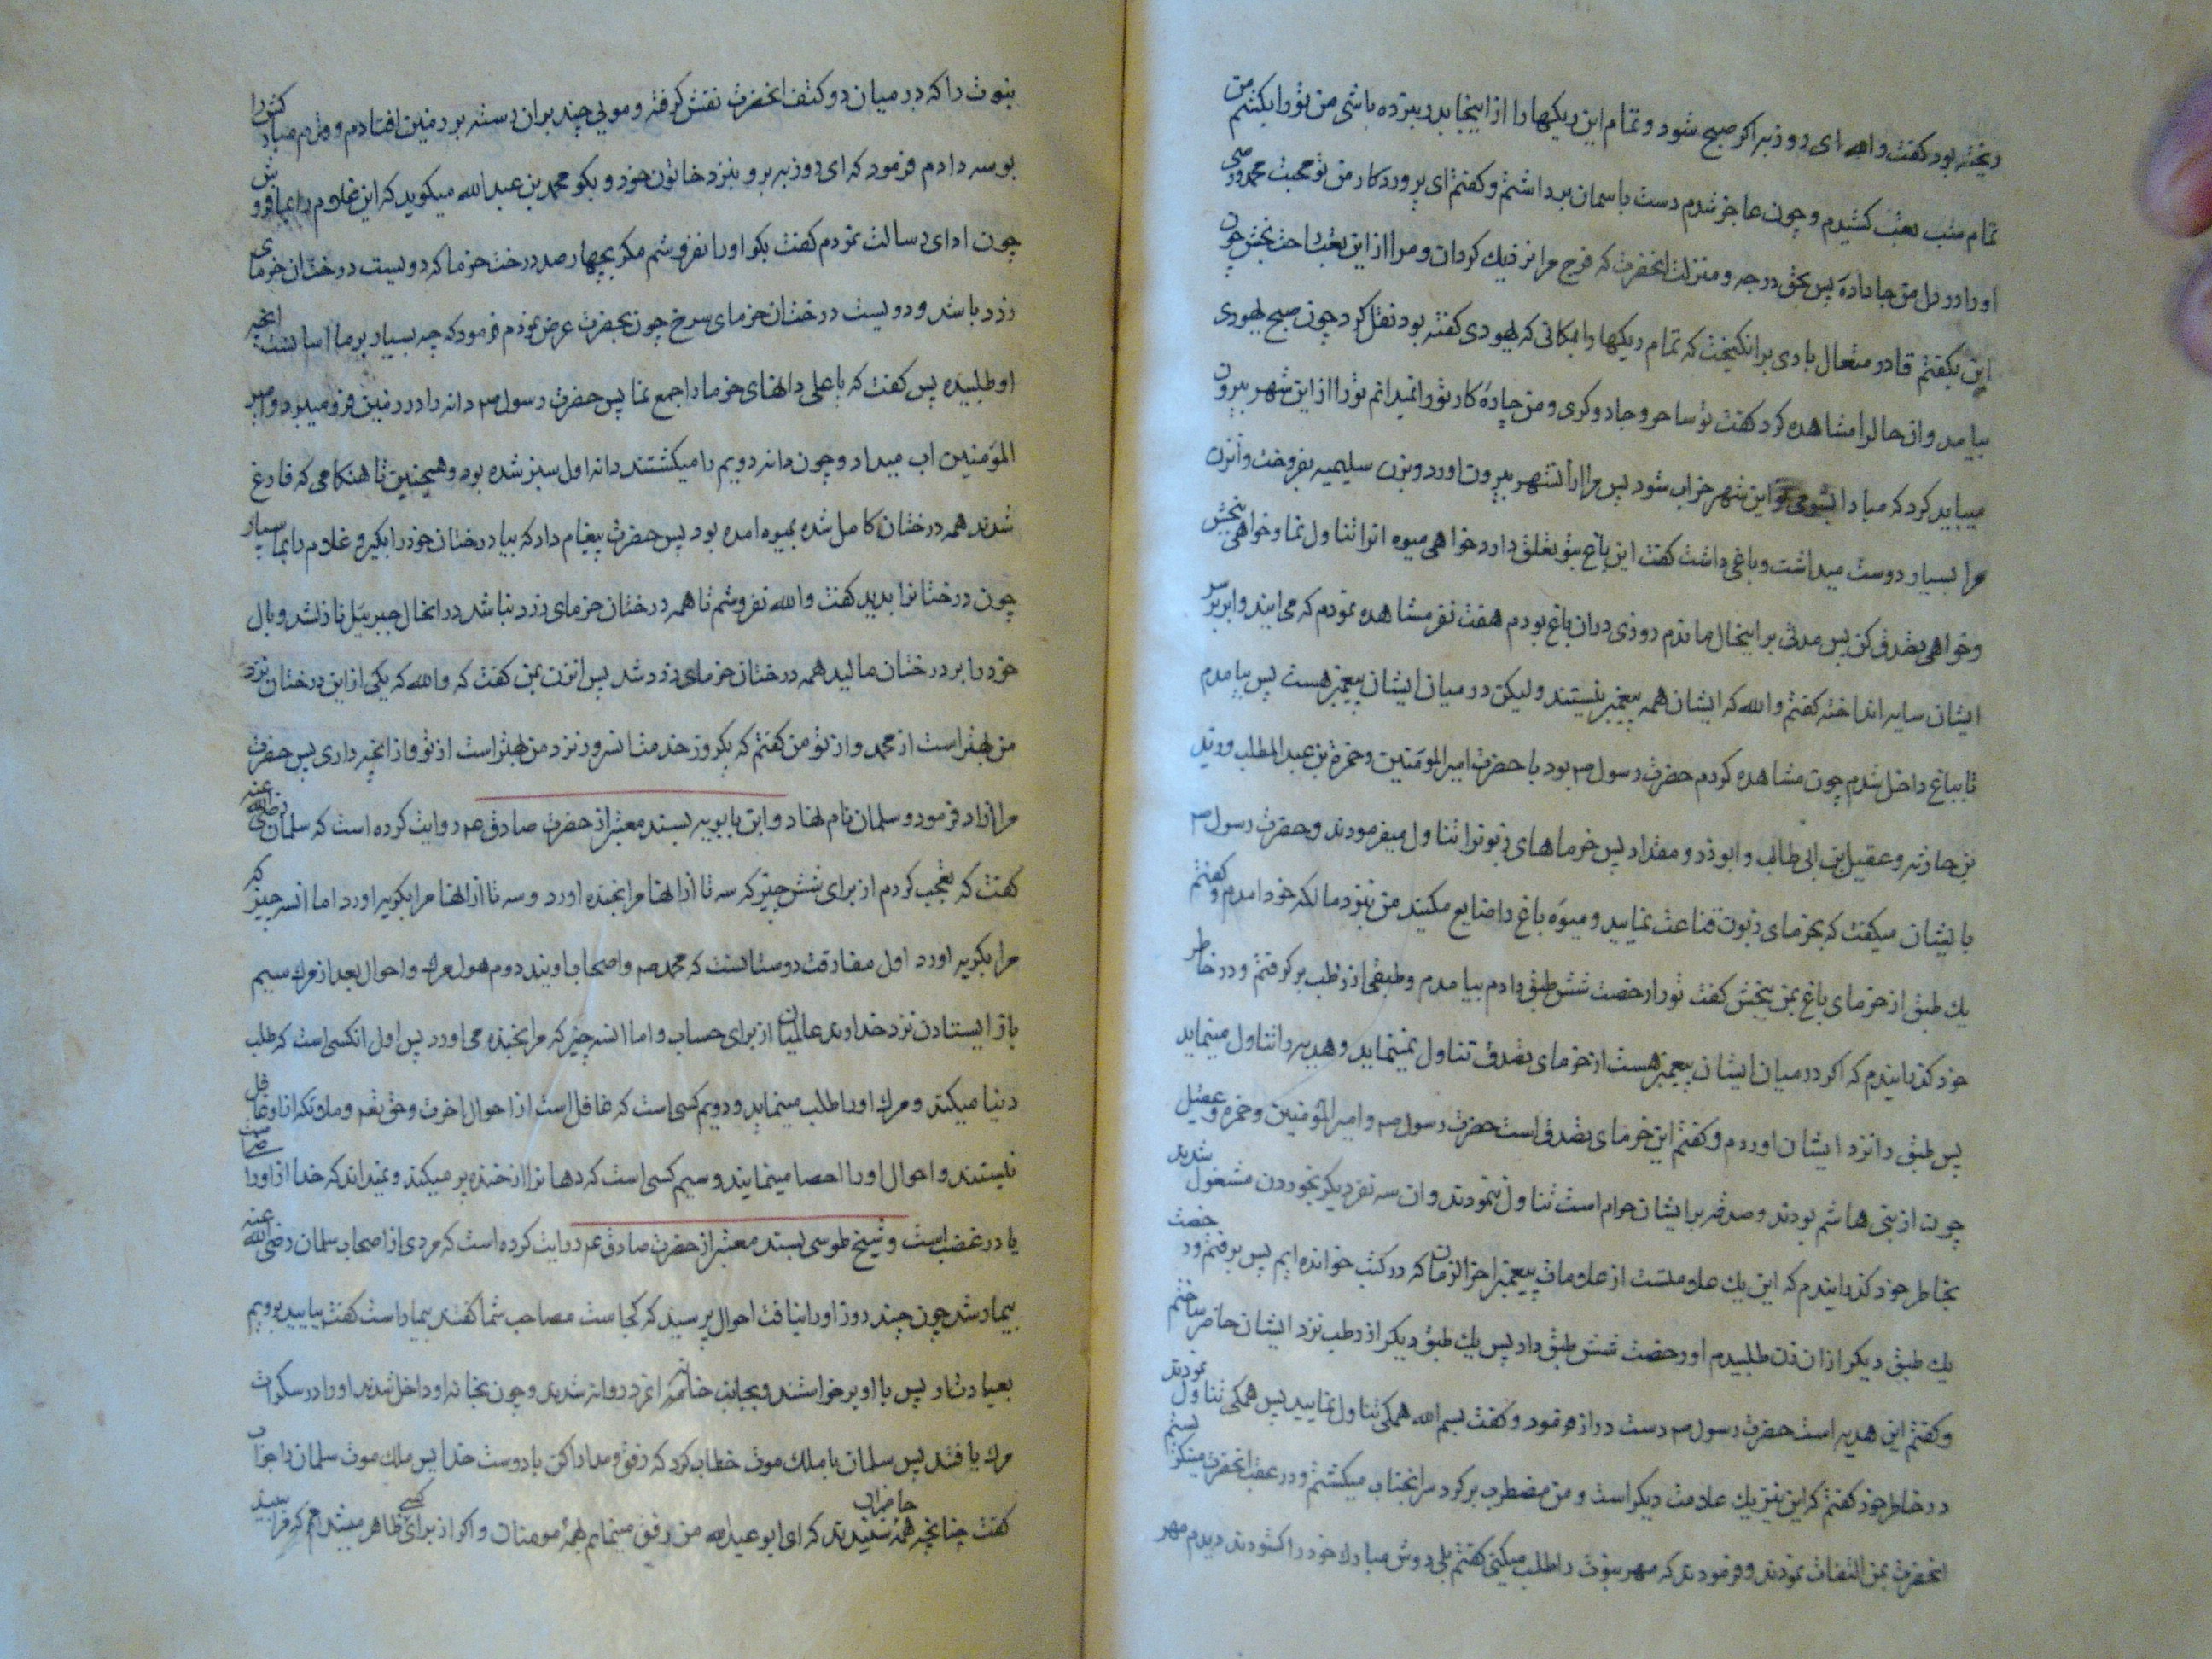 ریخته بود کفت والله ای روزبه اکر صبح شود و تمام این ریکها را از اینجا بدر نبرده باشی من تو را بکشم من
تمام شب تعب کشیدم و چون عاجز شدم دست باسمان برداشتم و کفتم ای پروردکار من تو محبت محمد و وصی
او را در دل من جا داده پس بحق درجه و منزلت انحضرت که فرج مرا نزدیك کردان و مرا از این تعب راحت بخش چون
این بکفتم قادر متعال بادی برانکیخت که تمام ریکها را بمکانی که یهودی کفته بود نقل کرد چون صبح یهودی
بیامد و ان حالرا مشاهده کرد کفت تو ساحر و جادوکری و من چارۀ کار تو را نمیدانم تو را از این شهر بیرون
میباید کرد که مبادا بشومی تو این شهر خراب شود پس مرا از انشهر بیرون اورد و بزن سلیمیه بفروخت و انزن
مرا بسیار دوست میداشت و باغی داشت کفت این باغ بتو تعلق دارد خواهی میوه انرا تناول نما و خواهی ببخش
و خواهی تصدق کن پس مدتی بر اینحال ماندم روزی در ان باغ بودم هفت نفر مشاهده نمودم که می ایند و ابر بر سر
ایشان سایه انداخته کفتم والله که ایشان همه پیغمبر نیستند و لیکن در میان ایشان پیغمبر هست پس بیامدم
تا بباغ داخل شدم چون مشاهده کردم حضرت رسول ص بود با حضرت امیر المؤمنین و حمزة بن عبد المطلب و زید
بن حارثه و عقیل بن ابی طالب و ابوذر و مقداد پس خرماهای زبونرا تناول میفرمودند و حضرت رسول ص
بایشان میکفت که بخرمای زبون قناعت نمایید و میوه باغ را ضایع مکنید من بنزد مالکه خود امدم و کفتم
یك طبق از خرمای باغ بمن ببخش کفت تو را رخصت شش طبق دادم بیامدم و طبقی از رطب برکرفتم و در خاطر
خود کذرانیدم که اکر در میان ایشان پیغمبر هست از خرمای تصدق تناول نمینماید و هدیه را تناول مینماید
پس طبق را نزد ایشان اوردم و کفتم این خرمای تصدق است حضرت رسول ص و امیر المؤمنین و حمزه و عقیل
چون از بنی هاشم بودند و صدقه بر ایشان حرام است تناول ننمودند و ان سه نفر دیکر بخوردن مشغول شدند
بخاطر خود کذرانیدم که این یك علامتست از علامات پیغمبر اخر الزمان که در کتب خوانده ایم پس برفتم و رخصت
یك طبق دیکر از ان زن طلبیدم او رخصت شش طبق داد پس یك طبق دیکر از رطب نزد ایشان حاضر ساختم
و کفتم این هدیه است حضرت رسول ص دست دراز فرمود و کفت بسم الله همکی تناول نمایید پس همکی تناول نمودند
در خاطر خود کفتم که این نیز یك علامت دیکر است و من مضطرب بر کرد سر انجناب میکشتم و در عقب انحضرت مینکریستم
انحضرت بمن التفات نمودند و فرمودند که مهر نبوت را طلب میکنی کفتم بلی دوش مبارك خود را کشودند دیدم مهر
نبوت را که در میان دو کتف انحضرت نقش کرفته و مویی چند بران رسته بر زمین افتادم و قدم مبارکش را
بوسه دادم فرمود که ای روزبه برو بنزد خاتون خود و بکو محمد بن عبد الله میکوید که این غلام را بما فروش
چون ادای رسالت نمودم کفت بکو او را نفروشم مکر بچهار صد درخت خرما که دویست درختان خرمای
زرد باشد و دویست درختان خرمای سرخ چون بحضرت عرض نمودم فرمود که چه بسیار بر ما اسانست انچه
او طلبیده پس کفت که یا علی دانهای خرما را جمع نما پس حضرت رسول ص دانه را در زمین فرو میبرد و امیر
المؤمنین اب میداد و چون دانه دویم را میکشتند دانه اول سبز شده بود و همچنین تا هنکامی که فارغ
شدند همه درختان کامل شده بمیوه امده بود پس حضرت پیغام داد که بیا درختان خود را بکیر و غلام را بما سپار
چون درختانرا بدید کفت والله نفروشم تا همه درختان خرمای زرد نباشد در انحال جبرییل نازلشد و بال
خود را بر درختان مالید همه درختان خرمای زرد شد پس انزن بمن کفت که والله که یکی از این درختان نزد
من بهتر است از محمد و از تو من کفتم که یکروز خدمت انسرور نزد من بهتر است از تو و از انچه داری پس حضرت
مرا ازاد فرمود و سلمان نام نهاد و ابن بابویه بسند معتبر از حضرت صادق ع م روایت کرده است که سلمان رضی الله عنه
کفت که تعجب کردم از برای شش چیز که سه تا از انها مرا بخنده اورد و سه تا از انها مرا بکریه اورد اما انسه چیز که
مرا بکریه اورد اول مفارقت دوستانست که محمد ص و اصحاب اویند دوم هول مرك و احوال بعد از مرك سییم
باز ایستادن نزد خداوند عالمیان از برای حساب و اما انسه چیز که مرا بخنده می اورد پس اول انکسی است که طلب
دنیا میکند و مرك او را طلب مینماید و دویم کسی است که غافل است از احوال اخرت و حق تعم و ملائکه از او غافل
نیستند و احوال او را احصا مینمایند و سییم کسی است که دهانرا از خنده پر میکند و نمیداند که خدا از او راضیست
یا در غضب است و شیخ طوسی بسند معتبر از حضرت صادق ع م روایت کرده است که مردی از اصحاب سلمان رضی الله عنه
بیمار شد چون چند روز او را نیافت احوال پرسید که کجاست مصاحب شما کفتند بیمار است کفت بیایید برویم
بعیادت او پس با او برخواستند و بجانب خانه انمرد روانه شدند و چون بخانه او داخل شدند او را در سکرات
مرك یافتند پس سلمان با ملك موت خطاب کرد که رفق و مدارا کن با دوست خدا پس ملك موت سلمان را جواب
کفت چنانچه همه حاضران شنیدند که ای ابو عبد الله من رفق مینمایم بهمۀ مومنان و اکر از برای کسی ظاهر میشدم که مرا ببیند